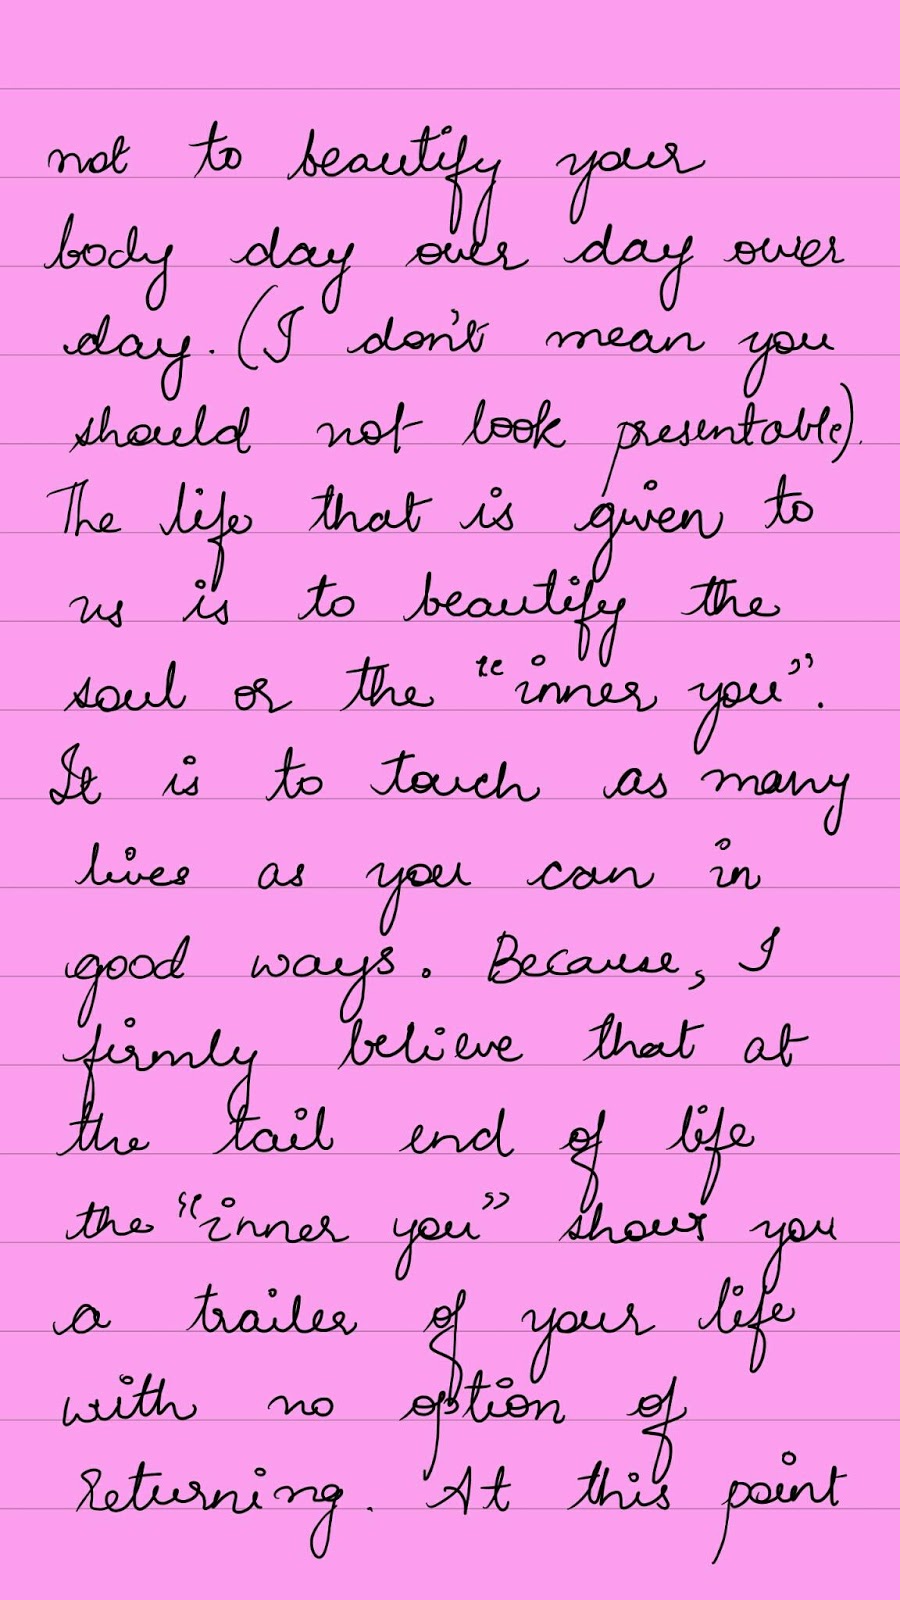 not to beautify your
body day over day over
day. (I don't mean you
should not look presentable).
The life that is given to
us is to beautify the
soul or the "inner you".
It is to touch as many
lives as you can in
good ways. Because, I
firmly believe that at
the tail end of life
the "inner you" shows you
a trailer of your life
with no option of
Returning. At this point